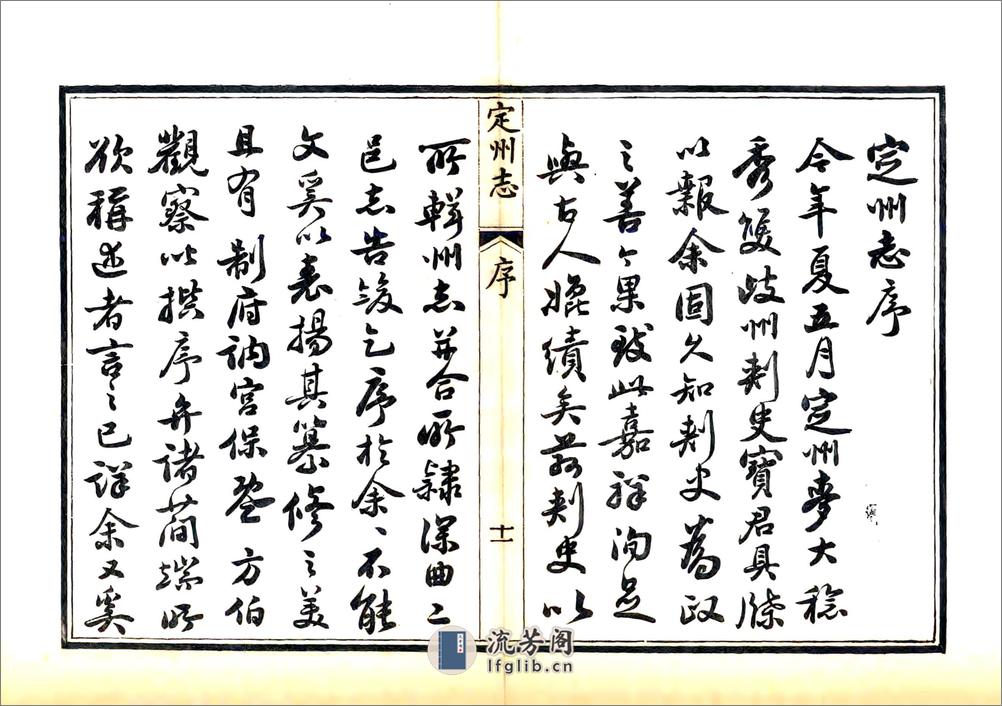 定州志序
今年夏五月定州麥大稔
秀雙歧州刺史寶君具牒
以報余固久知刺史為政
之善今果致此嘉祥洵足
與古人媲績矣茲刺史以
定州志
序
十一
所輯州志并合所隸深曲二
邑志告竣乞序於余〻不能
文奚以表揚其纂修之美
且有制府訥宮保暨方伯
觀察以撰序弁諸簡端所
欲稱述者言〻已詳余又奚
流芳阁
lfglib.cn